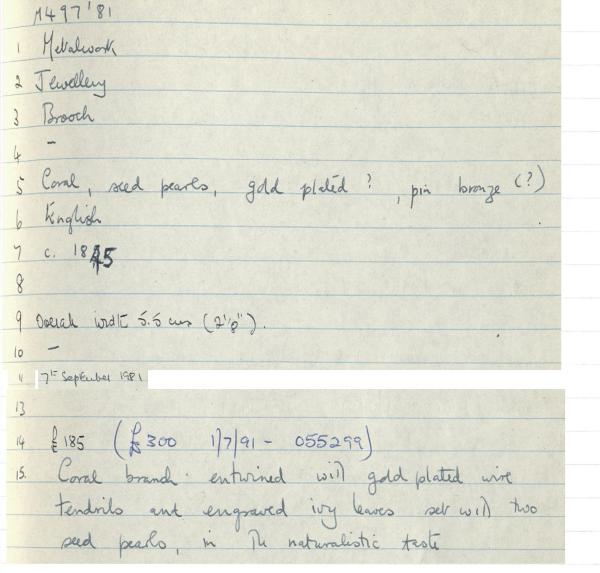 M497'81
1 Metalwork
2 Jewellery
3 Brooch
4 –
5 Coral, seed pearls, gold plated ?, pin bronze (?)
6 English
7 c. 1845
8
9 Overall width 5.5 cms (2⅛").
10 –
11 7th September 1981
13
14 £185 (£300 1/7/91 - 055299)
15. Coral branch entwined with gold plated wire
tendrils and engraved ivy leaves set with two
seed pearls, in the naturalistic taste